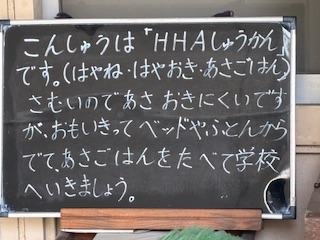 こんしゅうは「HHAしゅうかん」
です。(はやね・はやおき・あさごはん)
さむいのであさおきにくいです
が、おもいきってベッドやふとんから
でて、あさごはんをたべて学校
へいきましょう。